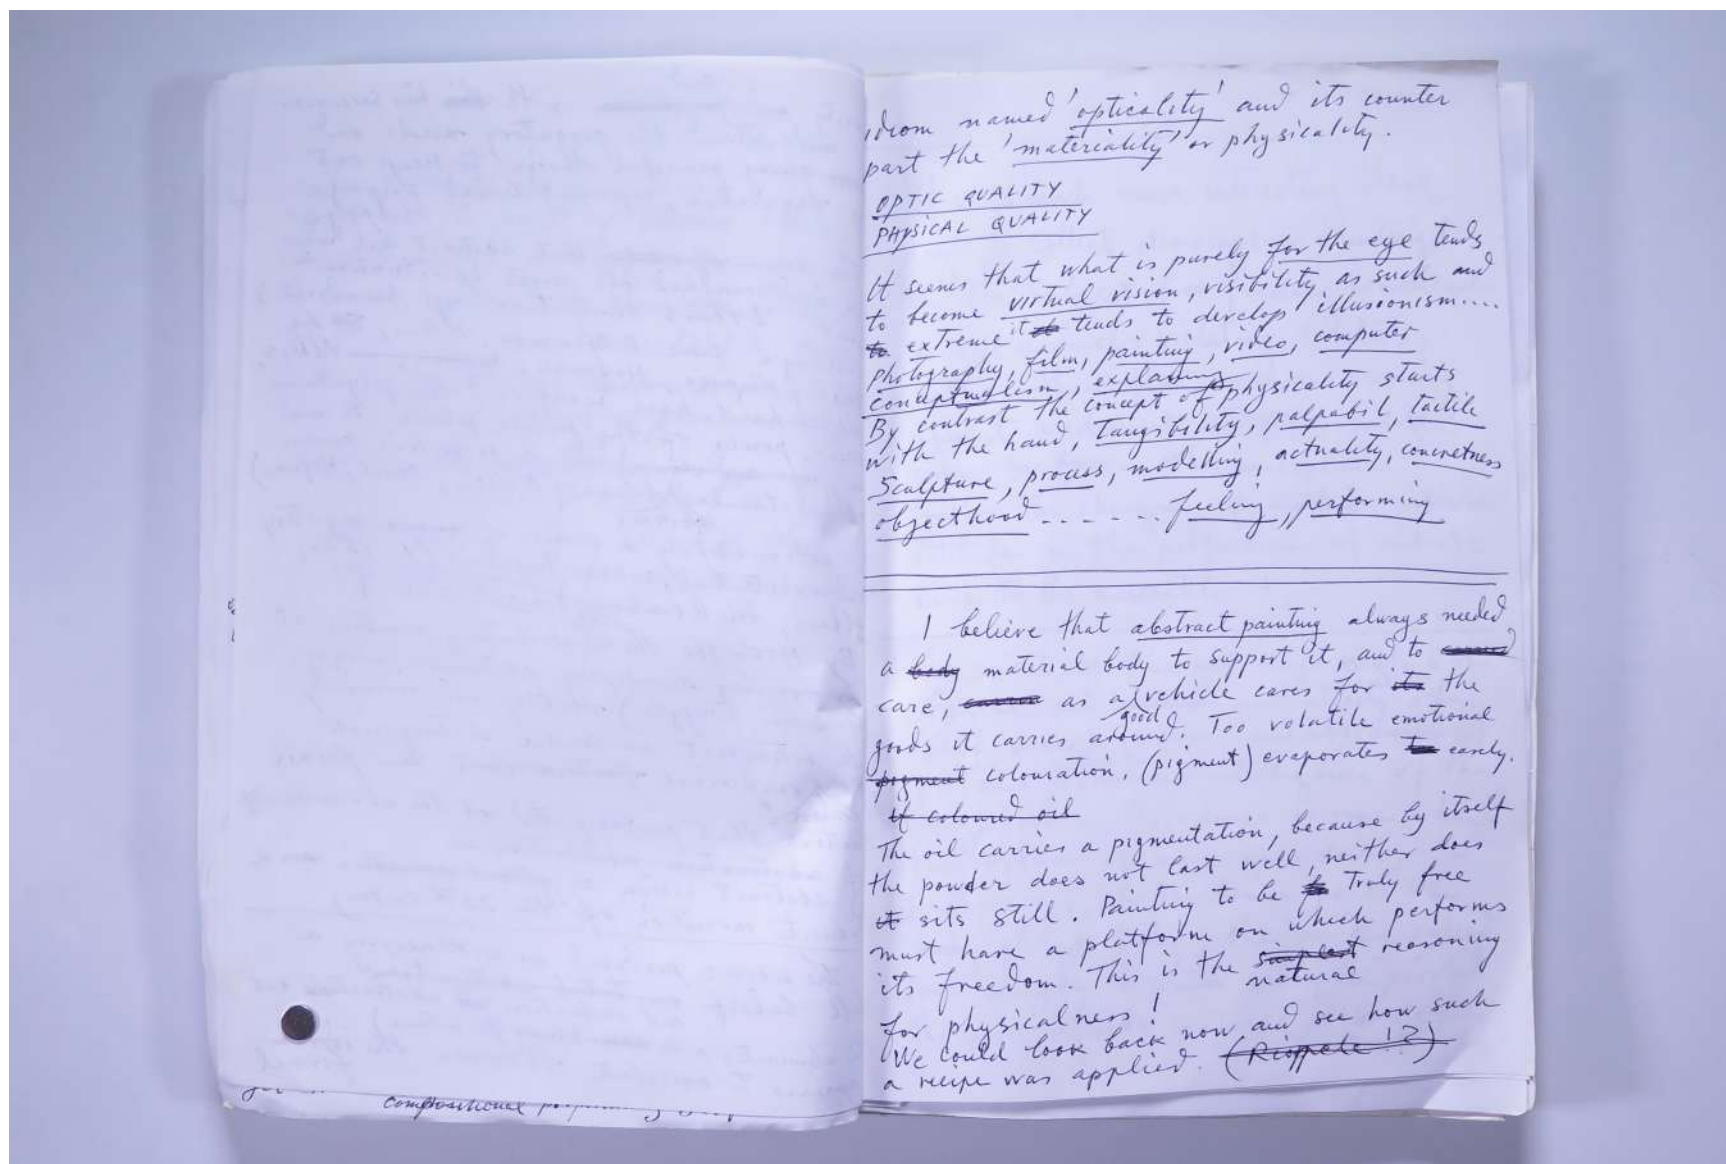 idiom named 'opticality' and its counter
part the 'materiality' or physicality.
OPTIC QUALITY
PHYSICAL QUALITY
It seems that what is purely for the eye tends
to become virtual vision, visibility as such and
to extreme it tends to develop illusionism....
photography, film, painting, video, computer
conceptualism, explaining
By contrast the concept of physicality starts
with the hand, tangibility, palpabil, tactile
Sculpture, process, modelling, actuality, concretness
objecthood ...... feeling, performing
I believe that abstract painting always needed
a body material body to support it, and to carried
care, as a good vehicle cares for its the
goods it carries around. Too volatile emotional
pigment colouration, (pigment) evaporates to easely.
if coloured oil
The oil carries a pigmentation, because by itself
the powder does not last well, neither does
it sits still. Painting to be truly free
must have a platforme on which performs
its freedom. This is the simplest reasoning
natural
for physicalness!
We could look back now and see how such
a recipe was applied. (Riopele!?)
compositional